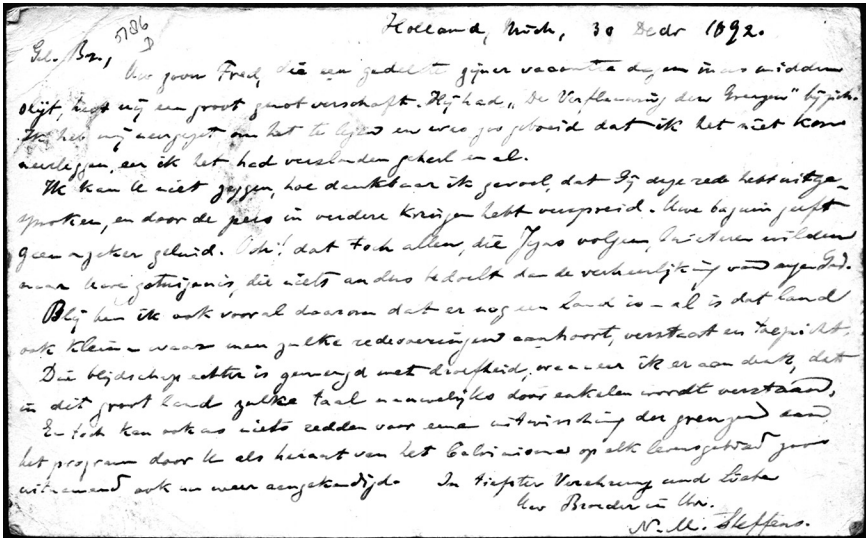 Holland, Mich, 30 Decbr 1892.
5786
D
Gel. Br.,
Uw zoon Fred, die een gedeelte zijner vacantie dagen in ons midden
slijt, heeft mij een groot genot verschaft. Hij had „De Verflauwing der Grenzen" bij zich.
Ik heb mij neergezet om het te lezen en was zoo geboeid dat ik het niet kon
neerleggen, eer ik het had verslonden geheel en al.
Ik kan U niet zeggen, hoe dankbaar ik gevoel, dat Gij deze rede hebt uitge-
sproken, en door de pers in verdere kringen hebt verspreid. Uwe bazuin geeft
geen onzeker geluid. Och! dat toch allen, die Jezus volgen, luisteren wilden
naar Uwe getuigenis, die niets anders bedoelt dan de verheerlijking van onzen God.
Blij ben ik ook vooral daarom dat er nog een land is – al is dat land
ook klein – waar men zulke redevoeringen aanhoort, verstaat en toejuicht.
Die blijdschap echter is gemengd met droefheid, wanneer ik er aan denk, dat
in dit groot land zulke taal nauwelijks door enkelen wordt verstaan.
En toch kan ook ons niets redden voor eene uitwissching der grenzen dan
het program door U als heraut van het Calvinisme op elk levensgebied zoo
uitnemend ook nu weer aangekondigd. In tiefster Verehrung und Liebe
Uw Broeder in Chr.
N. M. Steffens.